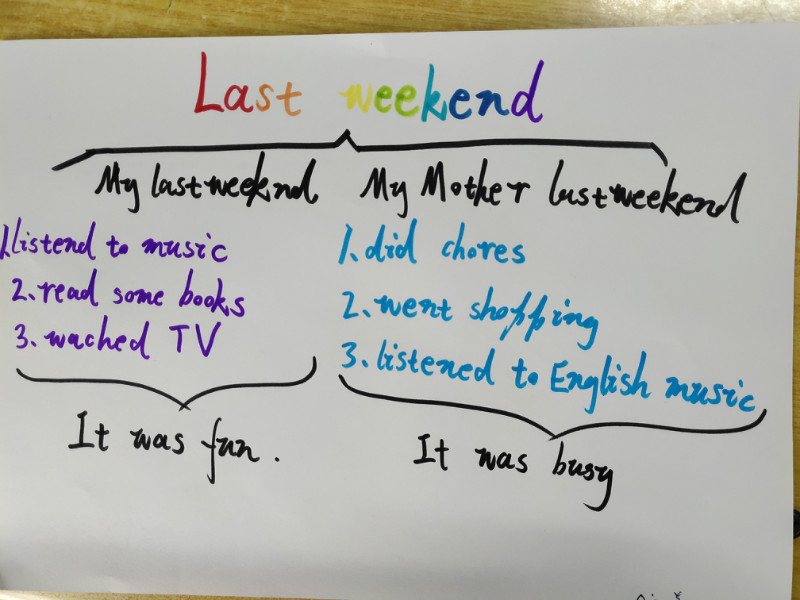 Last weekend
My last weekend
1.listend to music
2.read some books
3.wached TV
It was fun.
My Mother last weekend
1.did chores
2.went shopping
3.listened to English music
It was busy